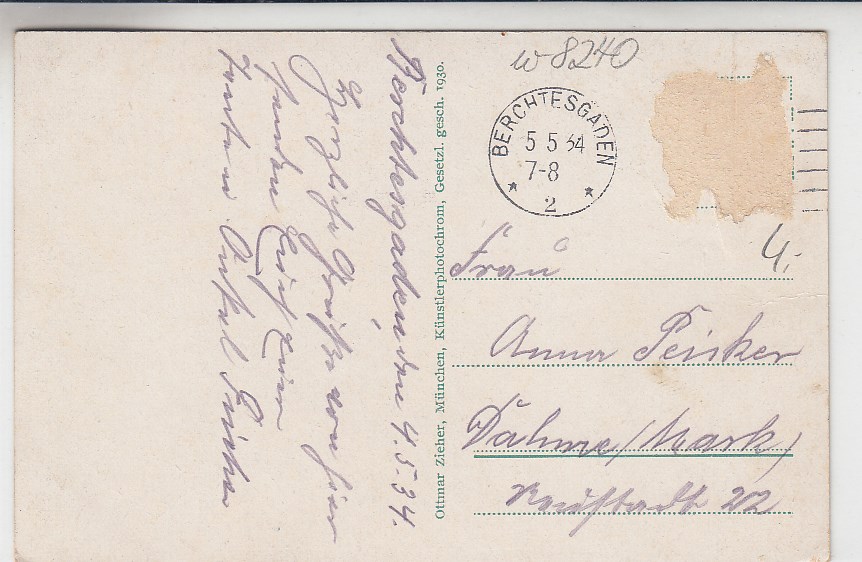 Berchtesgaden, den 4.5.34.
Herzliche Grüße von hier
senden
Tante u. Onkel
Ottmar Zieher, München, Künstlerphotochrom, Gesetzl. gesch. 1930.
w 8240
BERCHTESGADEN
5 5 34
7-8
2
4.-
Frau
Anna
Dahme/Mark)
202